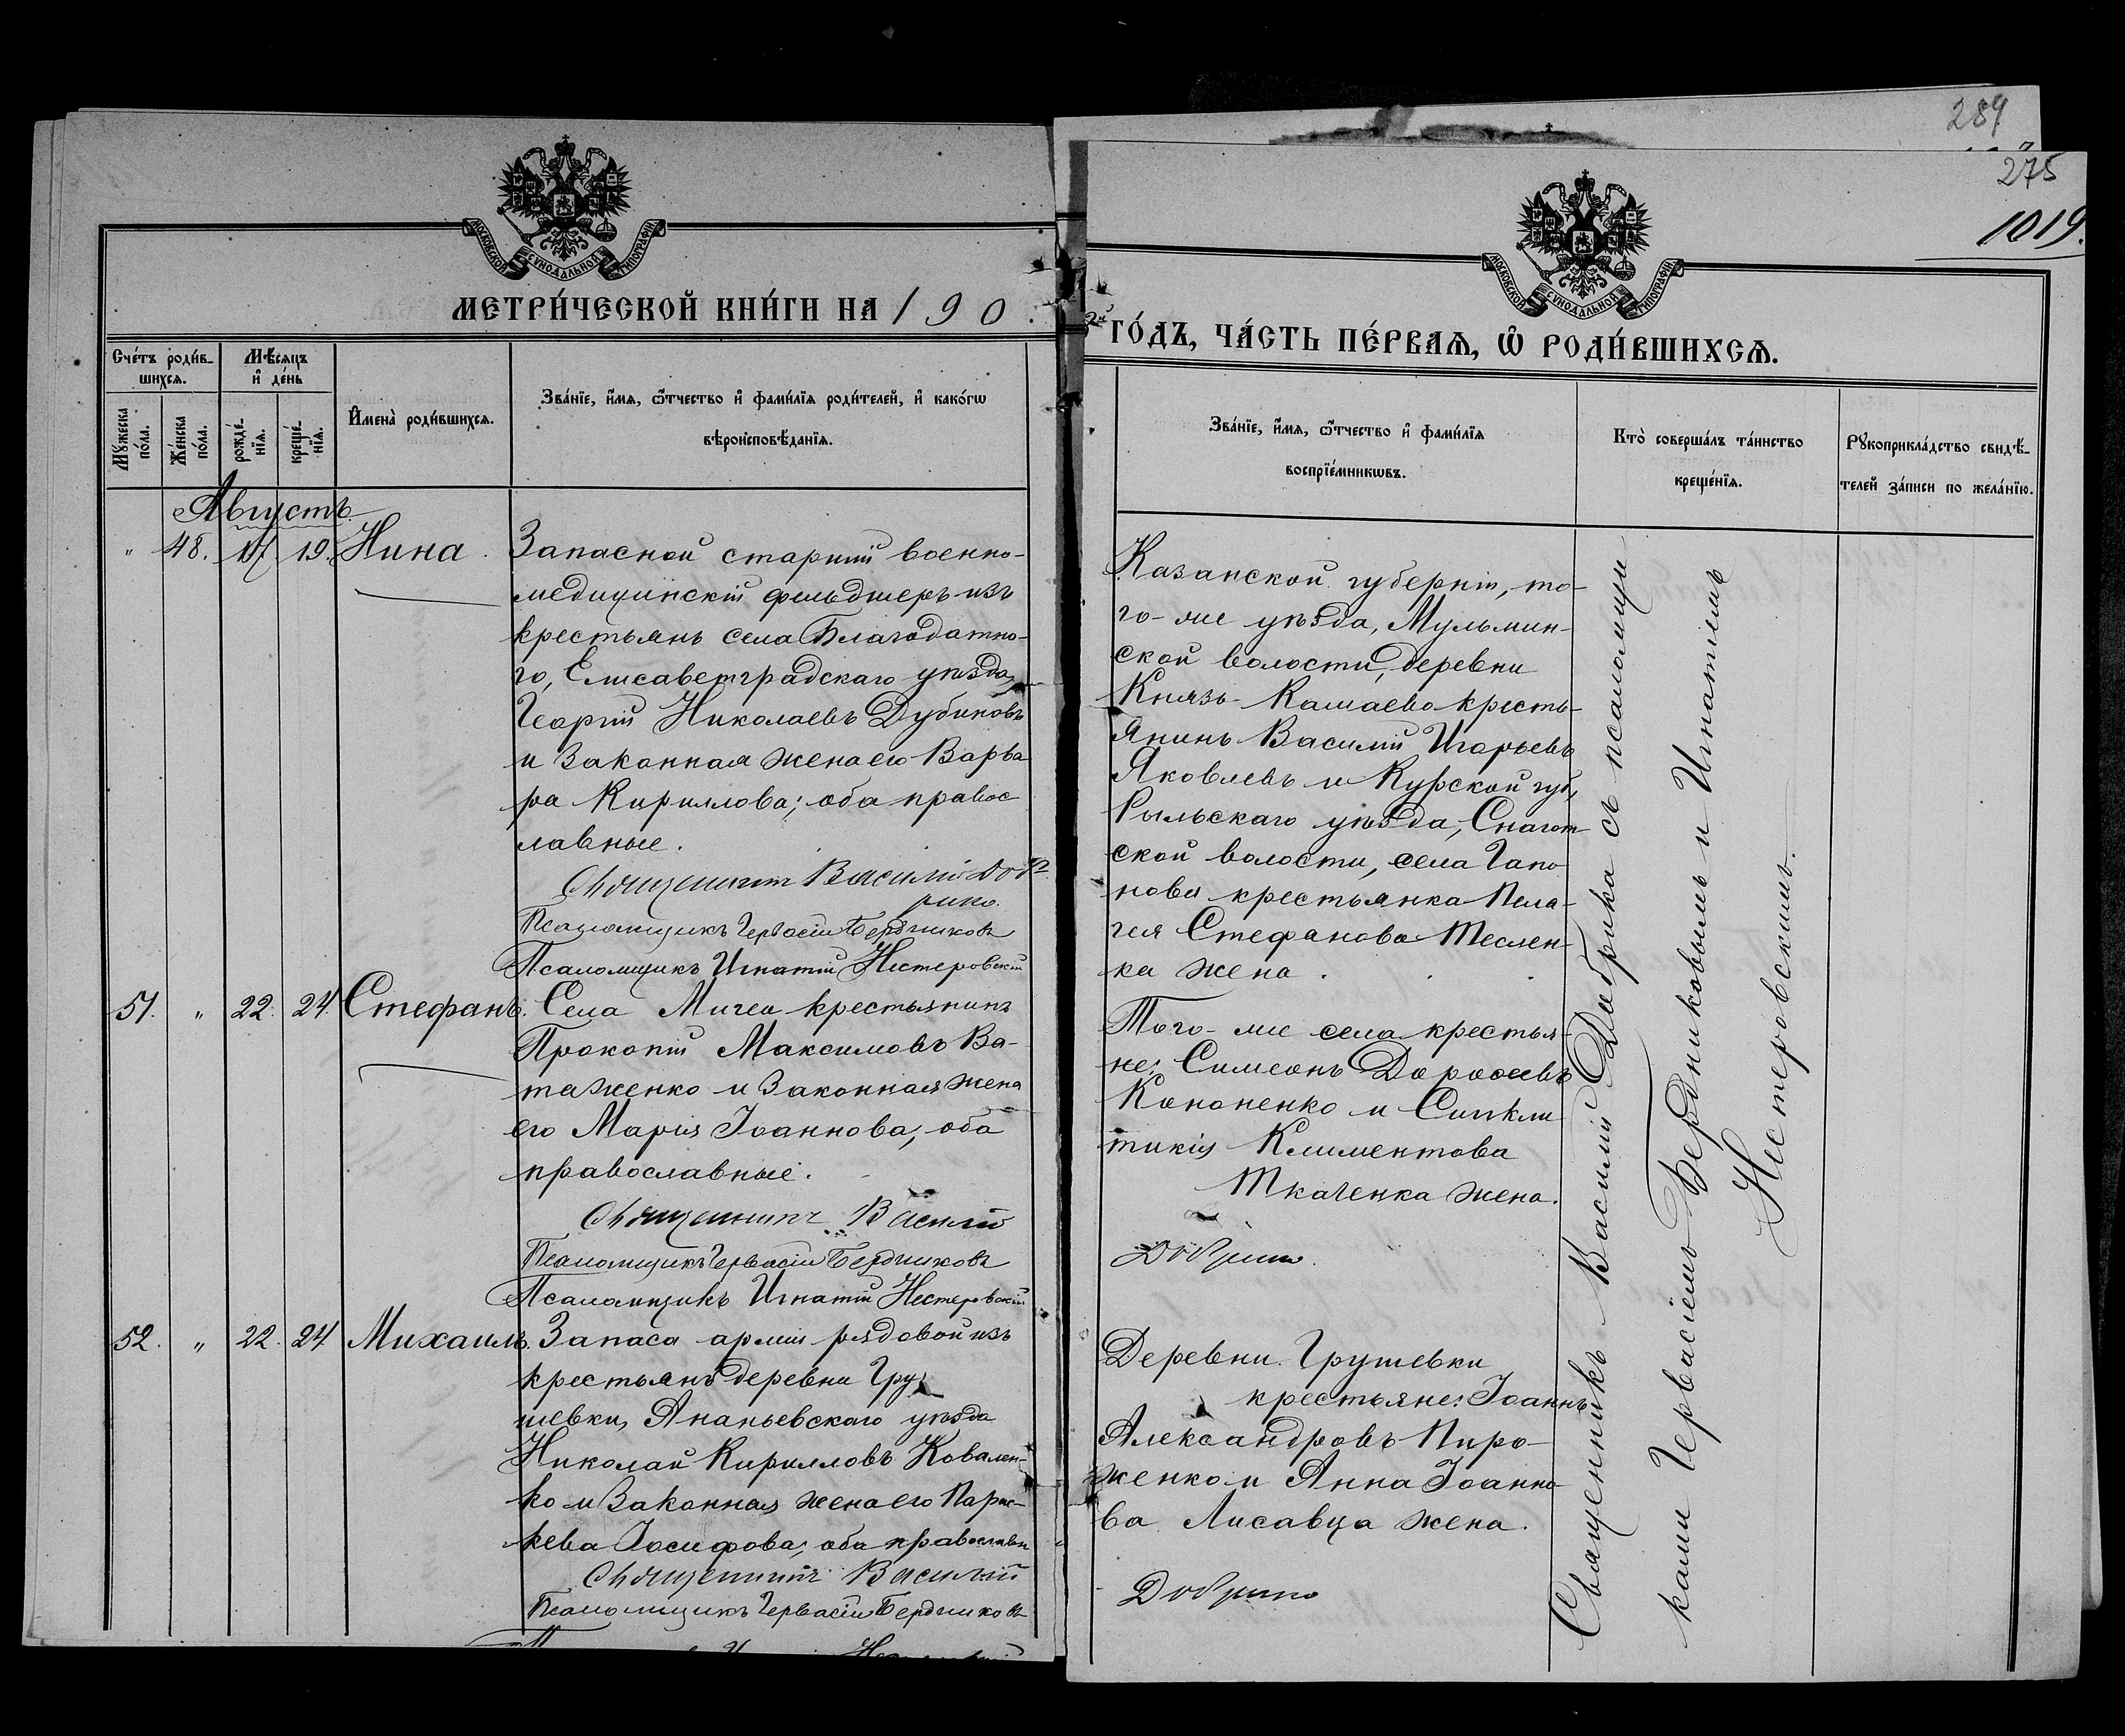 289
275
1019.
МОСКОВСКОЙ СѴНОДАЛЬНОЙ ТИПОГРАФІИ
МОСКОВСКОЙ СѴНОДАЛЬНОЙ ТИПОГРАФІИ
МЕТРИ́ЧЕСКОЙ КНИ́ГИ НА 190
2й ГО́ДЪ, ЧА́СТЬ ПЕ́РВАѦ, Ѽ РОДИ́ВШИХСѦ.
Сче́тъ роди́в-
шихсѧ.
Мꙋ́жеска по́ла.
Же́нска по́ла.
Мѣ́сяцъ
и҆ де́нь
рожде́-нїѧ.
креще́-нїѧ.
И҆мена̀ роди́вшихсѧ.
Зва́нїе, и҆́мѧ, ѻ҆́тчество и҆ фами́лїѧ роди́телей, и҆ како́гѡ
вѣроисповѣ́данїѧ.
Зва́нїе, и҆́мѧ, ѻ҆́тчество и҆ фами́лїѧ
воспрїе́мникѡвъ.
Кто̀ соверша́лъ та́инство
креще́нїѧ.
Рꙋкоприкла́дство свидѣ́-
телей за́писи по жела́нїю.
Августъ
" 48. 17 19. Нина.
Запасной старшій военно-
медицинскій фельдшеръ изъ
крестьянъ села Благодатно-
го, Елисаветградскаго уѣзда,
Георгій Николаевъ Дубиновъ
и законная жена его Варва
ра Кириллова; оба правос
лавные.
Священникъ Василій Доб
рико.
Псаломщикъ Гервасій Бердниковъ
Псаломщикъ Игнатій Нестеровскій
Казанской губерніи, то-
го-же уѣзда, Мульмин-
ской волости, деревни
Князь-Камаево кресть-
янинъ Василій Игорьевъ
Яковлевъ и Курской губ.,
Рыльскаго уѣзда, Снагот-
ской волости, села Гапо
нова крестьянка Пела-
гея Стефанова Теслен-
ка жена.
51. " 22. 24. Стефанъ.
Села Мигеи крестьянинъ
Прокопій Максимовъ Ва-
таженко и законная жена
его Марія Іоаннова, оба
православные.
Священникъ Василій
Псаломщикъ Гервасій Бердниковъ
Псаломщикъ Игнатій Нестеровскій
Того-же села крестья-
не: Симеонъ Дороѳеевъ
Кононенко и Синкли
тикія Климентова
Ткаченка жена.
Добрико.
52. " 22. 24 Михаилъ.
Запаса арміи рядовой изъ
крестьянъ деревни Гру
шевки, Ананьевскаго уѣзда
Николай Кирилловъ Ковален-
ко и законная жена его Парас-
кева Іосифова; оба православн
Священникъ Василій
Псаломщикъ Гервасій Бердниковъ
Деревни Грушевки
крестьяне: Іоаннъ
Александровъ Пиро-
женко и Анна Іоанно
ва Лисавца жена.
Добрико
Священникъ Василій Добрико съ псаломщи
ками Гервасіемъ Бердниковымъ и Игнатіемъ
Нестеровскимъ.